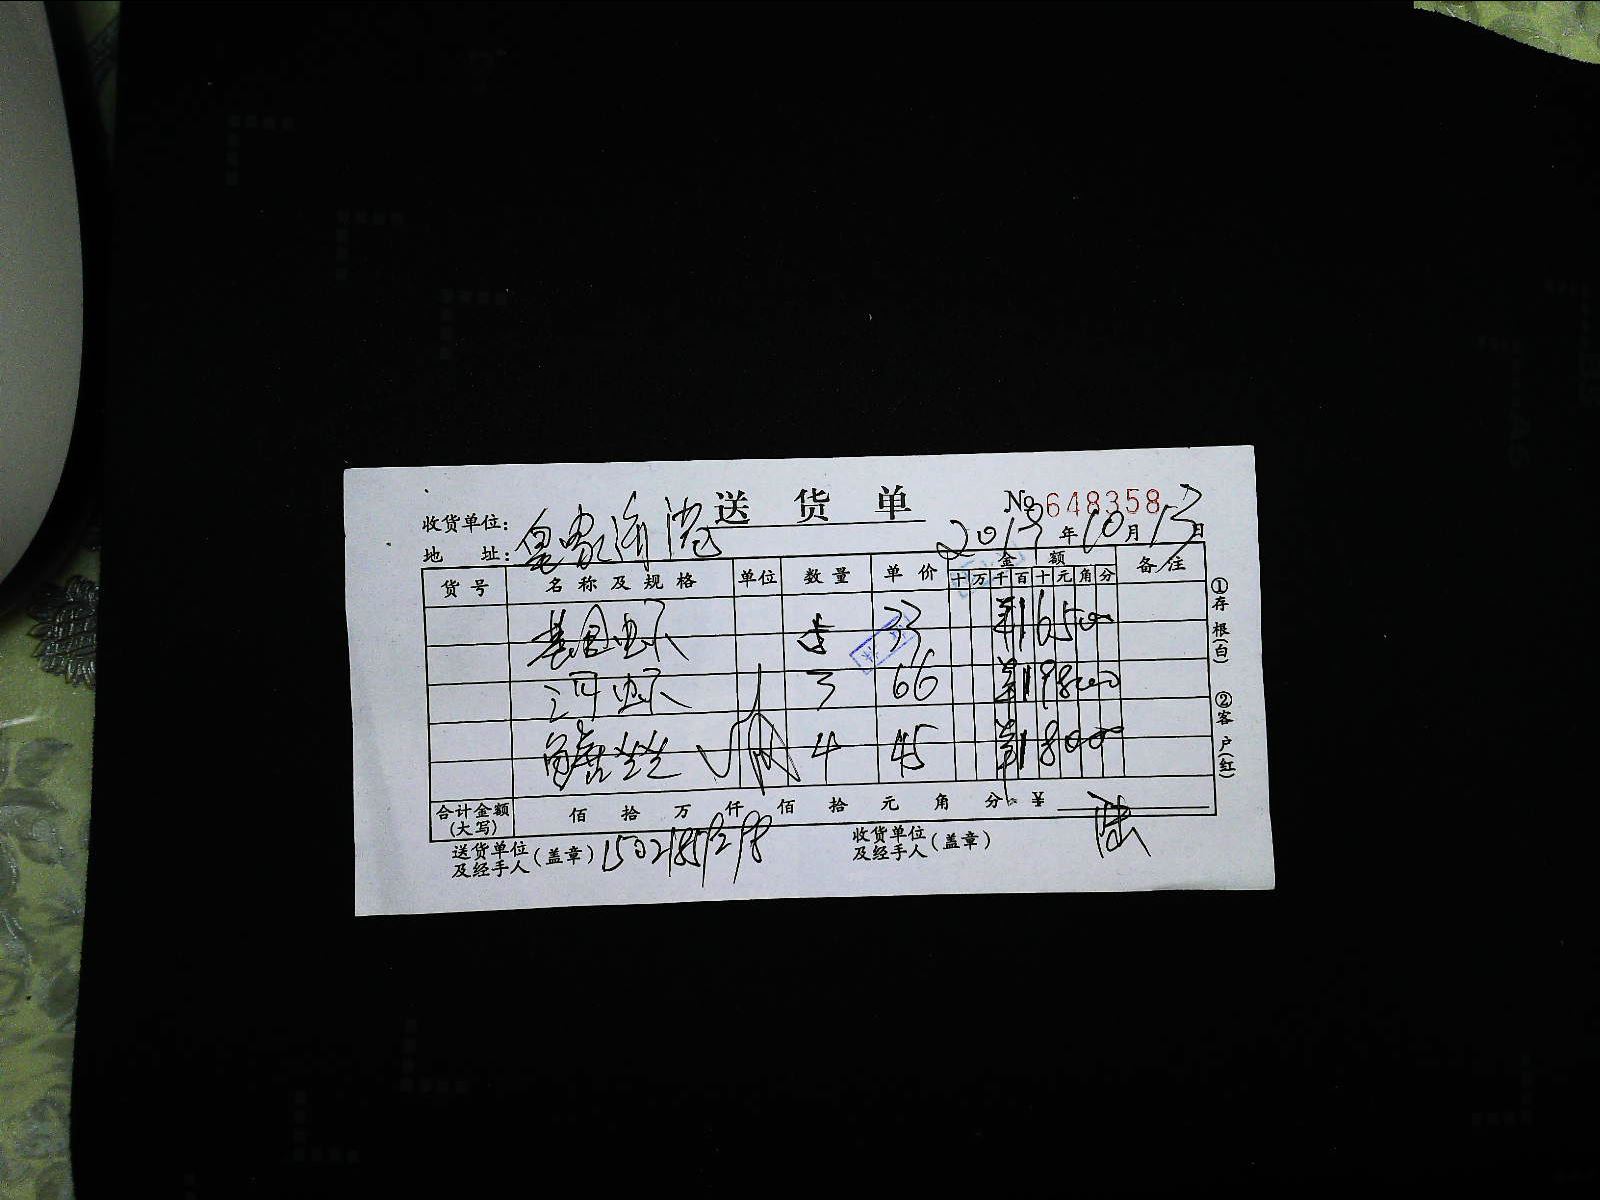 送货单
№648358
收货单位:
地 址: 皇家海湾
2019年10月13日
货号 名称及规格 单位 数量 单价 金额 备注
十万千百十元角分
基围虾 5 33 16500
河虾 3 66 19800
4 45 18000
合计金额(大写) 佰拾万仟佰拾元角分 ¥
送货单位及经手人(盖章)
收货单位及经手人(盖章) 陆
①存根(白) ②客户(红)